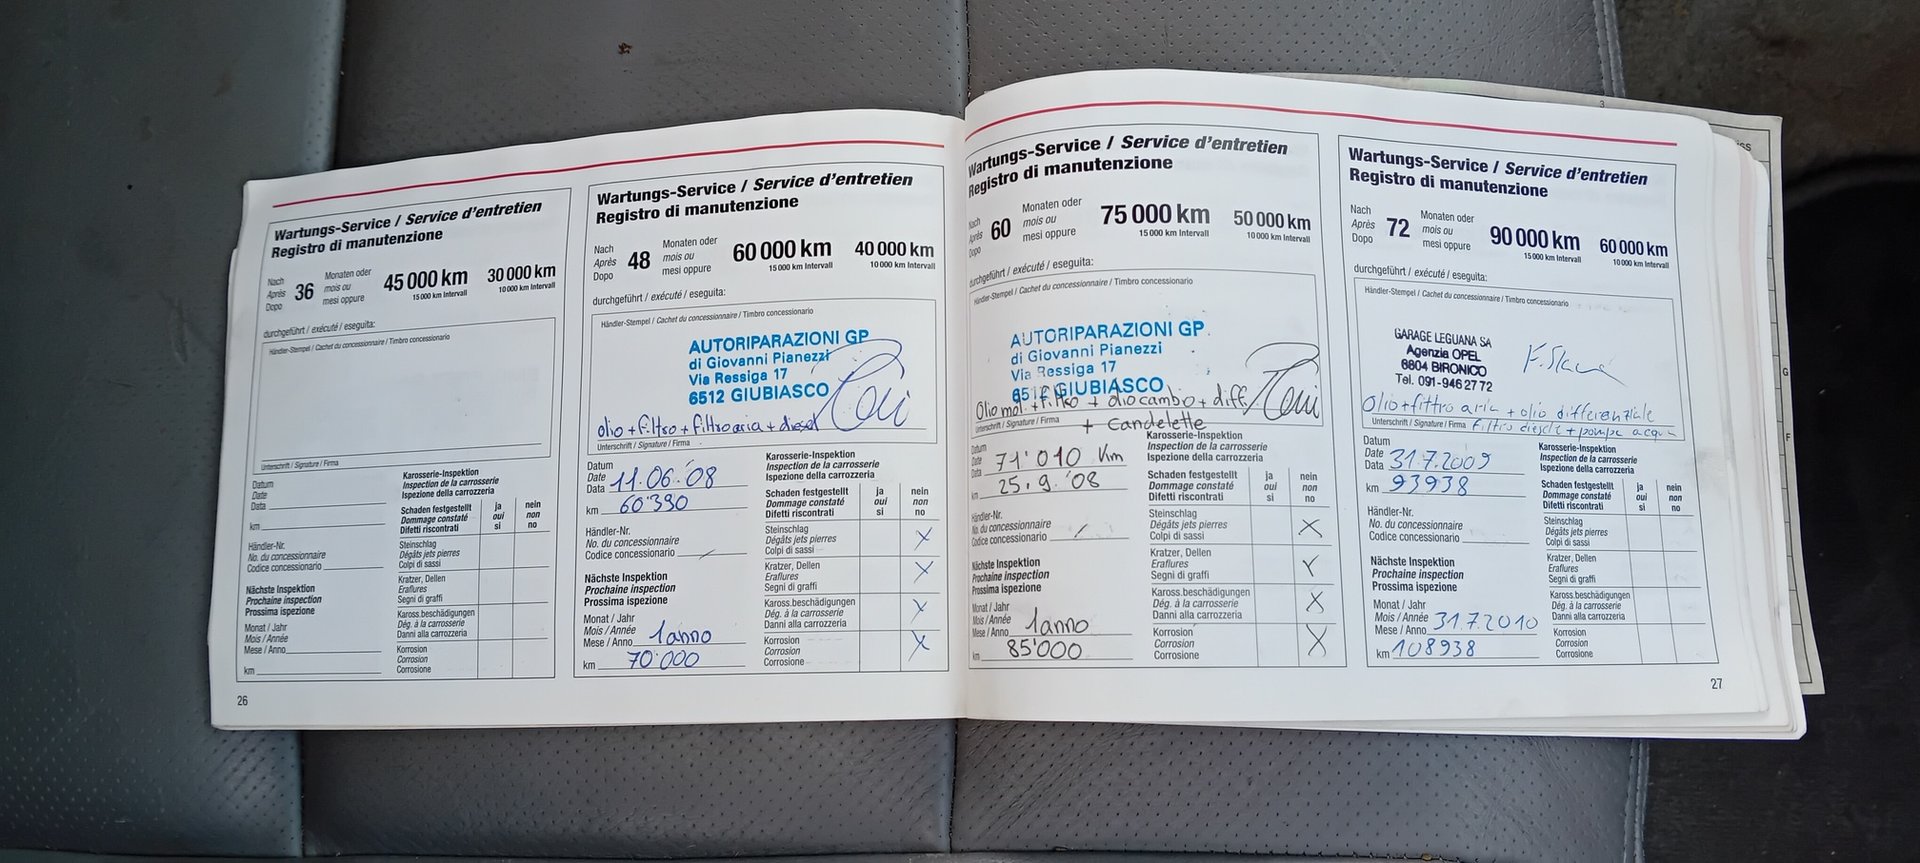 Wartungs-Service / Service d'entretien
Registro di manutenzione
Nach
Après
Dopo
36
Monaten oder
mois ou
mesi oppure
45 000 km
15 000 km Intervall
30 000 km
10 000 km Intervall
durchgeführt / exécuté / eseguita:
Händler-Stempel / Cachet du concessionnaire / Timbro concessionario
Unterschrift / Signature / Firma
Datum
Date
Data
km
Händler-Nr.
No. du concessionnaire
Codice concessionario
Nächste Inspektion
Prochaine inspection
Prossima ispezione
Monat / Jahr
Mois / Année
Mese / Anno
km
Karosserie-Inspektion
Inspection de la carrosserie
Ispezione della carrozzeria
Schaden festgestellt ja nein
Dommage constaté oui non
Difetti riscontrati si no
Steinschlag
Dégâts jets pierres
Colpi di sassi
Kratzer, Dellen
Eraflures
Segni di graffi
Kaross.beschädigungen
Dég. à la carrosserie
Danni alla carrozzeria
Korrosion
Corrosion
Corrosione
26
Wartungs-Service / Service d'entretien
Registro di manutenzione
Nach
Après
Dopo
48
Monaten oder
mois ou
mesi oppure
60 000 km
15 000 km Intervall
40 000 km
10 000 km Intervall
durchgeführt / exécuté / eseguita:
Händler-Stempel / Cachet du concessionnaire / Timbro concessionario
AUTORIPARAZIONI GP
di Giovanni Pianezzi
Via Ressiga 17
6512 GIUBIASCO
olio + filtro + filtro aria + diesel
Unterschrift / Signature / Firma
Datum
Date
Data 11.06.08
km 60'390
Händler-Nr.
No. du concessionnaire
Codice concessionario /
Nächste Inspektion
Prochaine inspection
Prossima ispezione
Monat / Jahr
Mois / Année
Mese / Anno 1 anno
km 70'000
Karosserie-Inspektion
Inspection de la carrosserie
Ispezione della carrozzeria
Schaden festgestellt ja nein
Dommage constaté oui non
Difetti riscontrati si no
Steinschlag
Dégâts jets pierres X
Colpi di sassi
Kratzer, Dellen
Eraflures X
Segni di graffi
Kaross.beschädigungen
Dég. à la carrosserie X
Danni alla carrozzeria
Korrosion
Corrosion X
Corrosione
Wartungs-Service / Service d'entretien
Registro di manutenzione
Nach
Après
Dopo
60
Monaten oder
mois ou
mesi oppure
75 000 km
15 000 km Intervall
50 000 km
10 000 km Intervall
durchgeführt / exécuté / eseguita:
Händler-Stempel / Cachet du concessionnaire / Timbro concessionario
AUTORIPARAZIONI GP
di Giovanni Pianezzi
Via Ressiga 17
6512 GIUBIASCO
Olio mot. + filtro + olio cambo + diff.
+ Candelette
Unterschrift / Signature / Firma
Datum
Date
Data
71'010 Km
km 25.9.'08
Händler-Nr.
No. du concessionnaire
Codice concessionario /
Nächste Inspektion
Prochaine inspection
Prossima ispezione
Monat / Jahr
Mois / Année
Mese / Anno 1 anno
km 85'000
Karosserie-Inspektion
Inspection de la carrosserie
Ispezione della carrozzeria
Schaden festgestellt ja nein
Dommage constaté oui non
Difetti riscontrati si no
Steinschlag
Dégâts jets pierres X
Colpi di sassi
Kratzer, Dellen
Eraflures X
Segni di graffi
Kaross.beschädigungen
Dég. à la carrosserie X
Danni alla carrozzeria
Korrosion
Corrosion X
Corrosione
Wartungs-Service / Service d'entretien
Registro di manutenzione
Nach
Après
Dopo
72
Monaten oder
mois ou
mesi oppure
90 000 km
15 000 km Intervall
60 000 km
10 000 km Intervall
durchgeführt / exécuté / eseguita:
Händler-Stempel / Cachet du concessionnaire / Timbro concessionario
GARAGE LEGUANA SA
Agenzia OPEL
6804 BIRONICO
Tel. 091-946 27 72
Olio + filtro aria + olio differenziale
Unterschrift / Signature / Firma filtro diesele + pompa acqua
Datum
Date
Data 31.7.2009
km 93938
Händler-Nr.
No. du concessionnaire
Codice concessionario
Nächste Inspektion
Prochaine inspection
Prossima ispezione
Monat / Jahr
Mois / Année
Mese / Anno 31.7.2010
km 108938
Karosserie-Inspektion
Inspection de la carrosserie
Ispezione della carrozzeria
Schaden festgestellt ja nein
Dommage constaté oui non
Difetti riscontrati si no
Steinschlag
Dégâts jets pierres
Colpi di sassi
Kratzer, Dellen
Eraflures
Segni di graffi
Kaross.beschädigungen
Dég. à la carrosserie
Danni alla carrozzeria
Korrosion
Corrosion
Corrosione
27
3
G
F